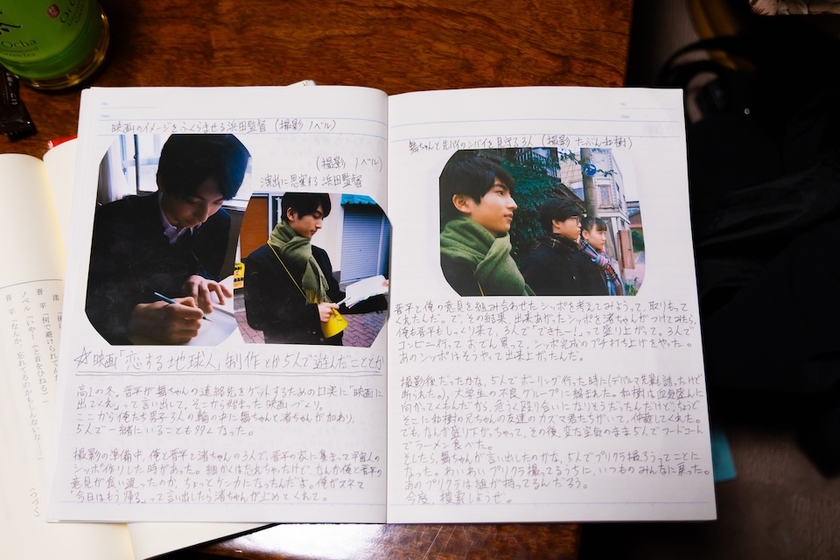 映画のイメージをふくらませる浜田監督 (撮影 ノベル)
(撮影 ノベル)
演出に思案する浜田監督
☆映画「恋する地球人」制作とか5人で遊んだこととか
高1の冬。晋平が舞ちゃんの連絡先をゲットするための口実に「映画に
出てくれ」って言い出して、そこから始まった映画づくり。
ここから俺たち男子3人の輪の中に舞ちゃんと渚ちゃんが加わり、
5人で一緒にいることも多くなった。
撮影の準備中、俺と晋平と渚ちゃんの3人で、晋平の家に集まって宇宙人の
シッポ作りした時があった。細かくは忘れちゃったけど、なんか俺と晋平の
意見が食い違ったのか、ちょっとケンカになったんだよ。俺がスネて
「今日はもう帰る」って言い出したら渚ちゃんが止めてくれて。
舞ちゃんと
を見守る3人 (撮影 たぶん和樹)
晋平と俺の意見を組み合わせたシッポを考えてみようって、取りもって
くれたんだ。でその結果、出来あがったシッポを渚ちゃんがつけてみたら、
俺も晋平もしっくり来て。3人で「できたー!」って盛り上がって。3人で
コンビニ行っておでん買って、シッポ完成のプチ打ち上げをやった。
あのシッポはそうやって出来上がったんだ。
撮影後だったかな。5人でボーリング行った時に
断られた)、大学生の不良グループに絡まれた。和樹は
向かってくもんだから、危うく殴り合いになりそうだったんだけど、
そこに和樹の兄ちゃんの友達のカズマ君たちがいて、仲裁してくれた。
でも、なんか盛り下がっちゃって、その後、変な空気のまま5人でフードコート
でラーメン食べた。
そしたら、舞ちゃんが言い出したのかな、5人でプリクラ撮ろうってことに
なった。わいわいプリクラ撮ってるうちに、いつものみんなに戻った。
あのプリクラは誰が持ってるんだろう。
今度、捜索しようぜ。
ノベル「いやー」と首をひねる)
晋 平「なんか、忘れてるかもしんないなー」
(つづく)
Ocha